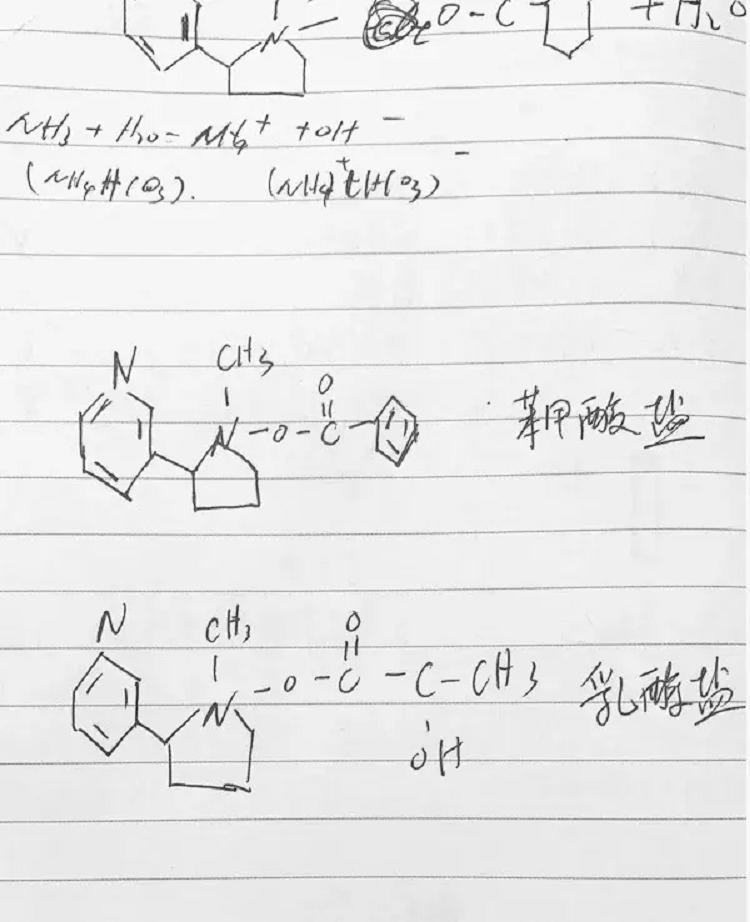 N O-C + H₂O
NH₃ + H₂O = NH₄⁺ + OH⁻
(NH₄HCO₃). (NH₄)⁺(HCO₃)⁻
N CH₃ O
N-O-C 苯甲酸盐
N CH₃ O
N-O-C-C-CH₃ 乳酸盐
OH